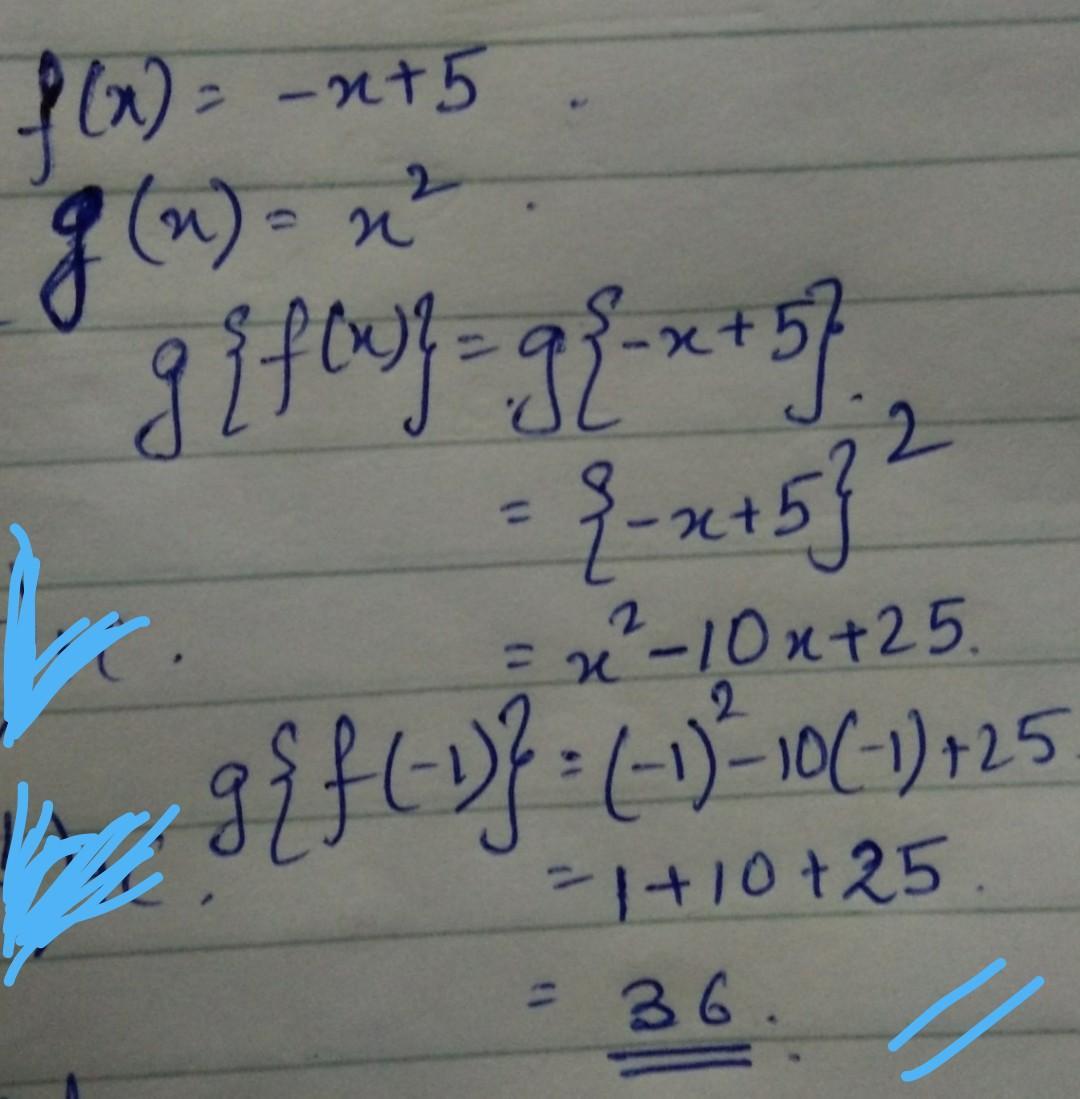 f(x) = -x+5 .
g(x) = x² .
g{f(x)} = g{-x+5}.
= {-x+5}²
= x²-10x+25.
g{f(-1)} = (-1)²-10(-1)+25
= 1+10+25.
= 36.